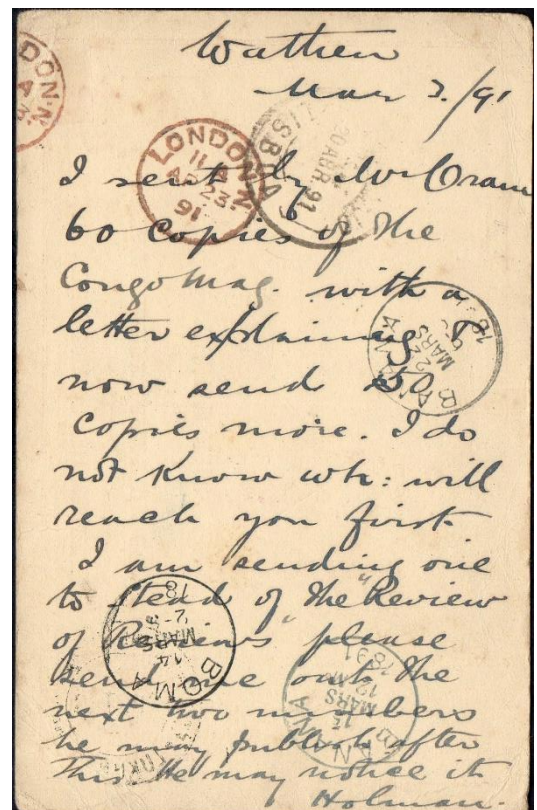 Wathen
Mar 3./91
I sent by Mr Oram
60 copies of the
Congo Mag. with a
letter explaining I
now send 250
copies more. I do
not know wh: will
reach you first
I am sending one
to Stead of the "Review
of Reviews" please
send me out the
next two numbers
he may publish after
this he may notice it
Holman
LONDON.N
11 A
AP 23
91
LISBOA
ABR. 91
BANANA
MARS
BOMA
14
MARS
18